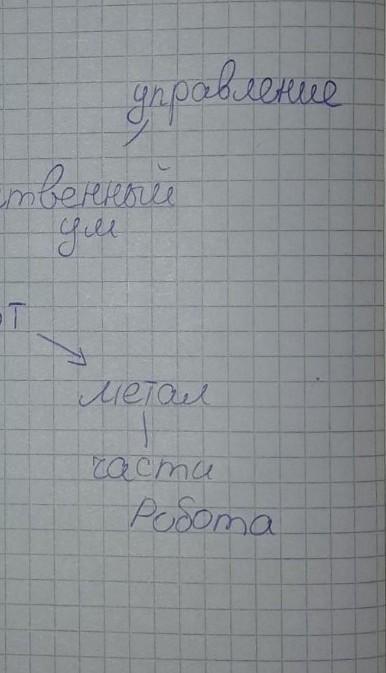 управление
ственный
ум
от
метал
части
Робота